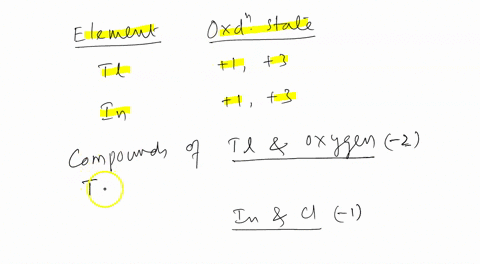 Element Oxdⁿ. State
Tl +1, +3
In +1, +3
Compounds of Tl & oxygen (-2)
T
In & Cl (-1)